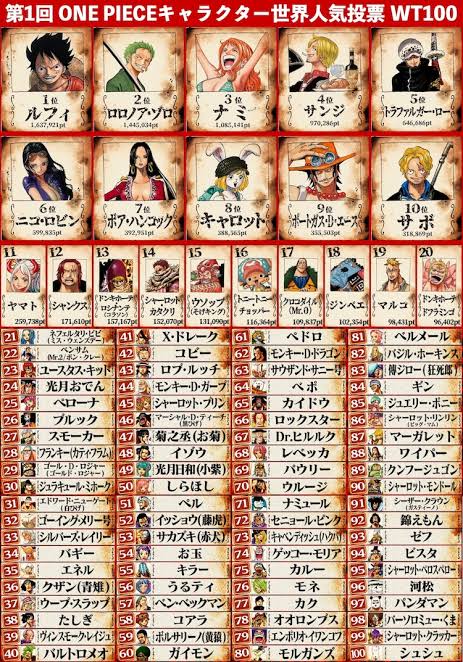 第1回 ONE PIECEキャラクター世界人気投票 WT100
1位
ルフィ
1,637,921pt
2位
ロロノア・ゾロ
1,445,034pt
3位
ナミ
1,085,141pt
4位
サンジ
970,286pt
5位
トラファルガー・ロー
646,686pt
6位
ニコ・ロビン
599,835pt
7位
ボア・ハンコック
392,951pt
8位
キャロット
388,565pt
9位
ポートガス・D・エース
355,503pt
10位
サボ
318,869pt
11位
ヤマト
259,738pt
12位
シャンクス
171,610pt
13位
ドンキホーテ・ロシナンテ(コラソン)
157,167pt
14位
シャーロット・カタクリ
152,070pt
15位
ウソップ(そげキング)
131,090pt
16位
トニートニー・チョッパー
116,364pt
17位
クロコダイル(Mr.0)
109,837pt
18位
ジンベエ
102,354pt
19位
マルコ
98,431pt
20位
ドンキホーテ・ドフラミンゴ
96,402pt
21 ネフェルタリ・ビビ(ミス・ウェンズデー)
22 ベンサム(Mr.2ボン・クレー)
23 ユースタス・キッド
24 光月おでん
25 ペローナ
26 ブルック
27 スモーカー
28 フランキー(カティ・フラム)
29 ゴール・D・ロジャー(ゴールド・ロジャー)
30 ジュラキュール・ミホーク
31 エドワード・ニューゲート(白ひげ)
32 ゴーイング・メリー号
33 シルバーズ・レイリー
34 バギー
35 エネル
36 クザン(青雉)
37 ウープ・スラップ
38 たしぎ
39 ヴィンスモーク・レイジュ
40 バルトロメオ
41 X・ドレーク
42 コビー
43 ロブ・ルッチ
44 モンキー・D・ガープ
45 シャーロット・プリン
46 マーシャル・D・ティーチ(黒ひげ)
47 菊之丞(お菊)
48 イゾウ
49 光月日和(小紫)
50 しらほし
51 ペル
52 イッショウ(藤虎)
53 サカズキ(赤犬)
54 お玉
55 キラー
56 うるティ
57 ベン・ベックマン
58 コアラ
59 ボルサリーノ(黄猿)
60 ガイモン
61 ペドロ
62 モンキー・D・ドラゴン
63 サウザンド・サニー号
64 ベポ
65 カイドウ
66 ロックスター
67 Dr.ヒルルク
68 レベッカ
69 パウリー
70 ウルージ
71 ナミュール
72 セニョール・ピンク
73 キャベンディッシュ(ハクバ)
74 ゲッコー・モリア
75 カルー
76 モネ
77 カク
78 オオロンブス
79 エンポリオ・イワンコフ
80 モルガンズ
81 ベルメール
82 バジル・ホーキンス
83 傳ジロー(狂死郎)
84 ギン
85 ジュエリー・ボニー
86 シャーロット・リンリン(ビッグ・マム)
87 マーガレット
88 ワイパー
89 クンフージュゴン
90 シャーロット・モンドール
91 シーザー・クラウン
92 錦えもん
93 ゼフ
94 ビスタ
95 シャーロット・ペロスペロー
96 河松
97 パンダマン
98 バーソロミュー・くま
99 シャーロット・クラッカー
100 シュシュ